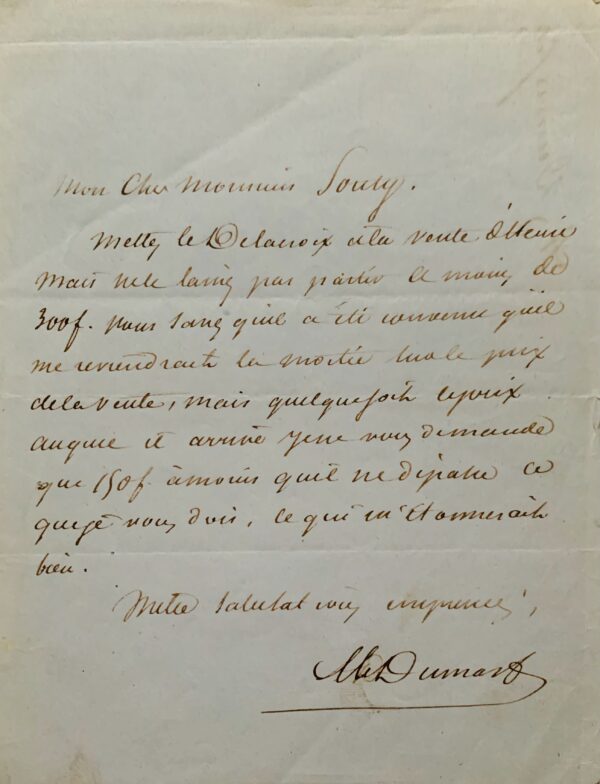 Mon Cher Monsieur Souty.
Mettez le Delacroix à la vente
mais ne le laissez pas partir à moins de
300f. vous savez qu'il a été convenu qu'il
me reviendrait la moitié sur le prix
de la vente, mais quelque soit le prix
auquel il arrive je ne vous demande
que 150f. à moins qu'il ne dépasse ce
que je vous dois, ce qui m'étonnerait
bien.
salutations empressées,